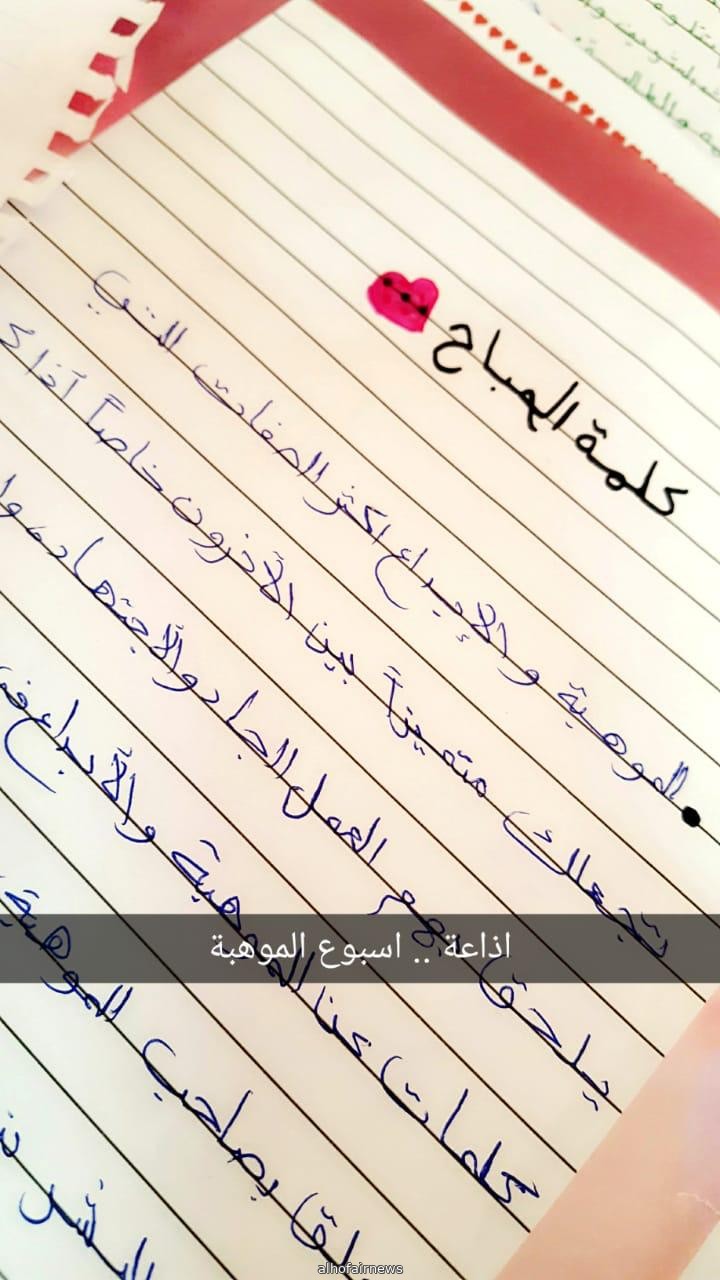 كلمة الصباح
الموهبة والإبداع اكثر الصفات التي
تجعلك متميزاً بين الآخرون خاصاً آذا
يلحق بهم العمل الجاد والآجتهاد
كلمات عن الموهبة والآبداع
بصاحب الموهبة
البشر
اذاعة .. اسبوع الموهبة
alhofairnews